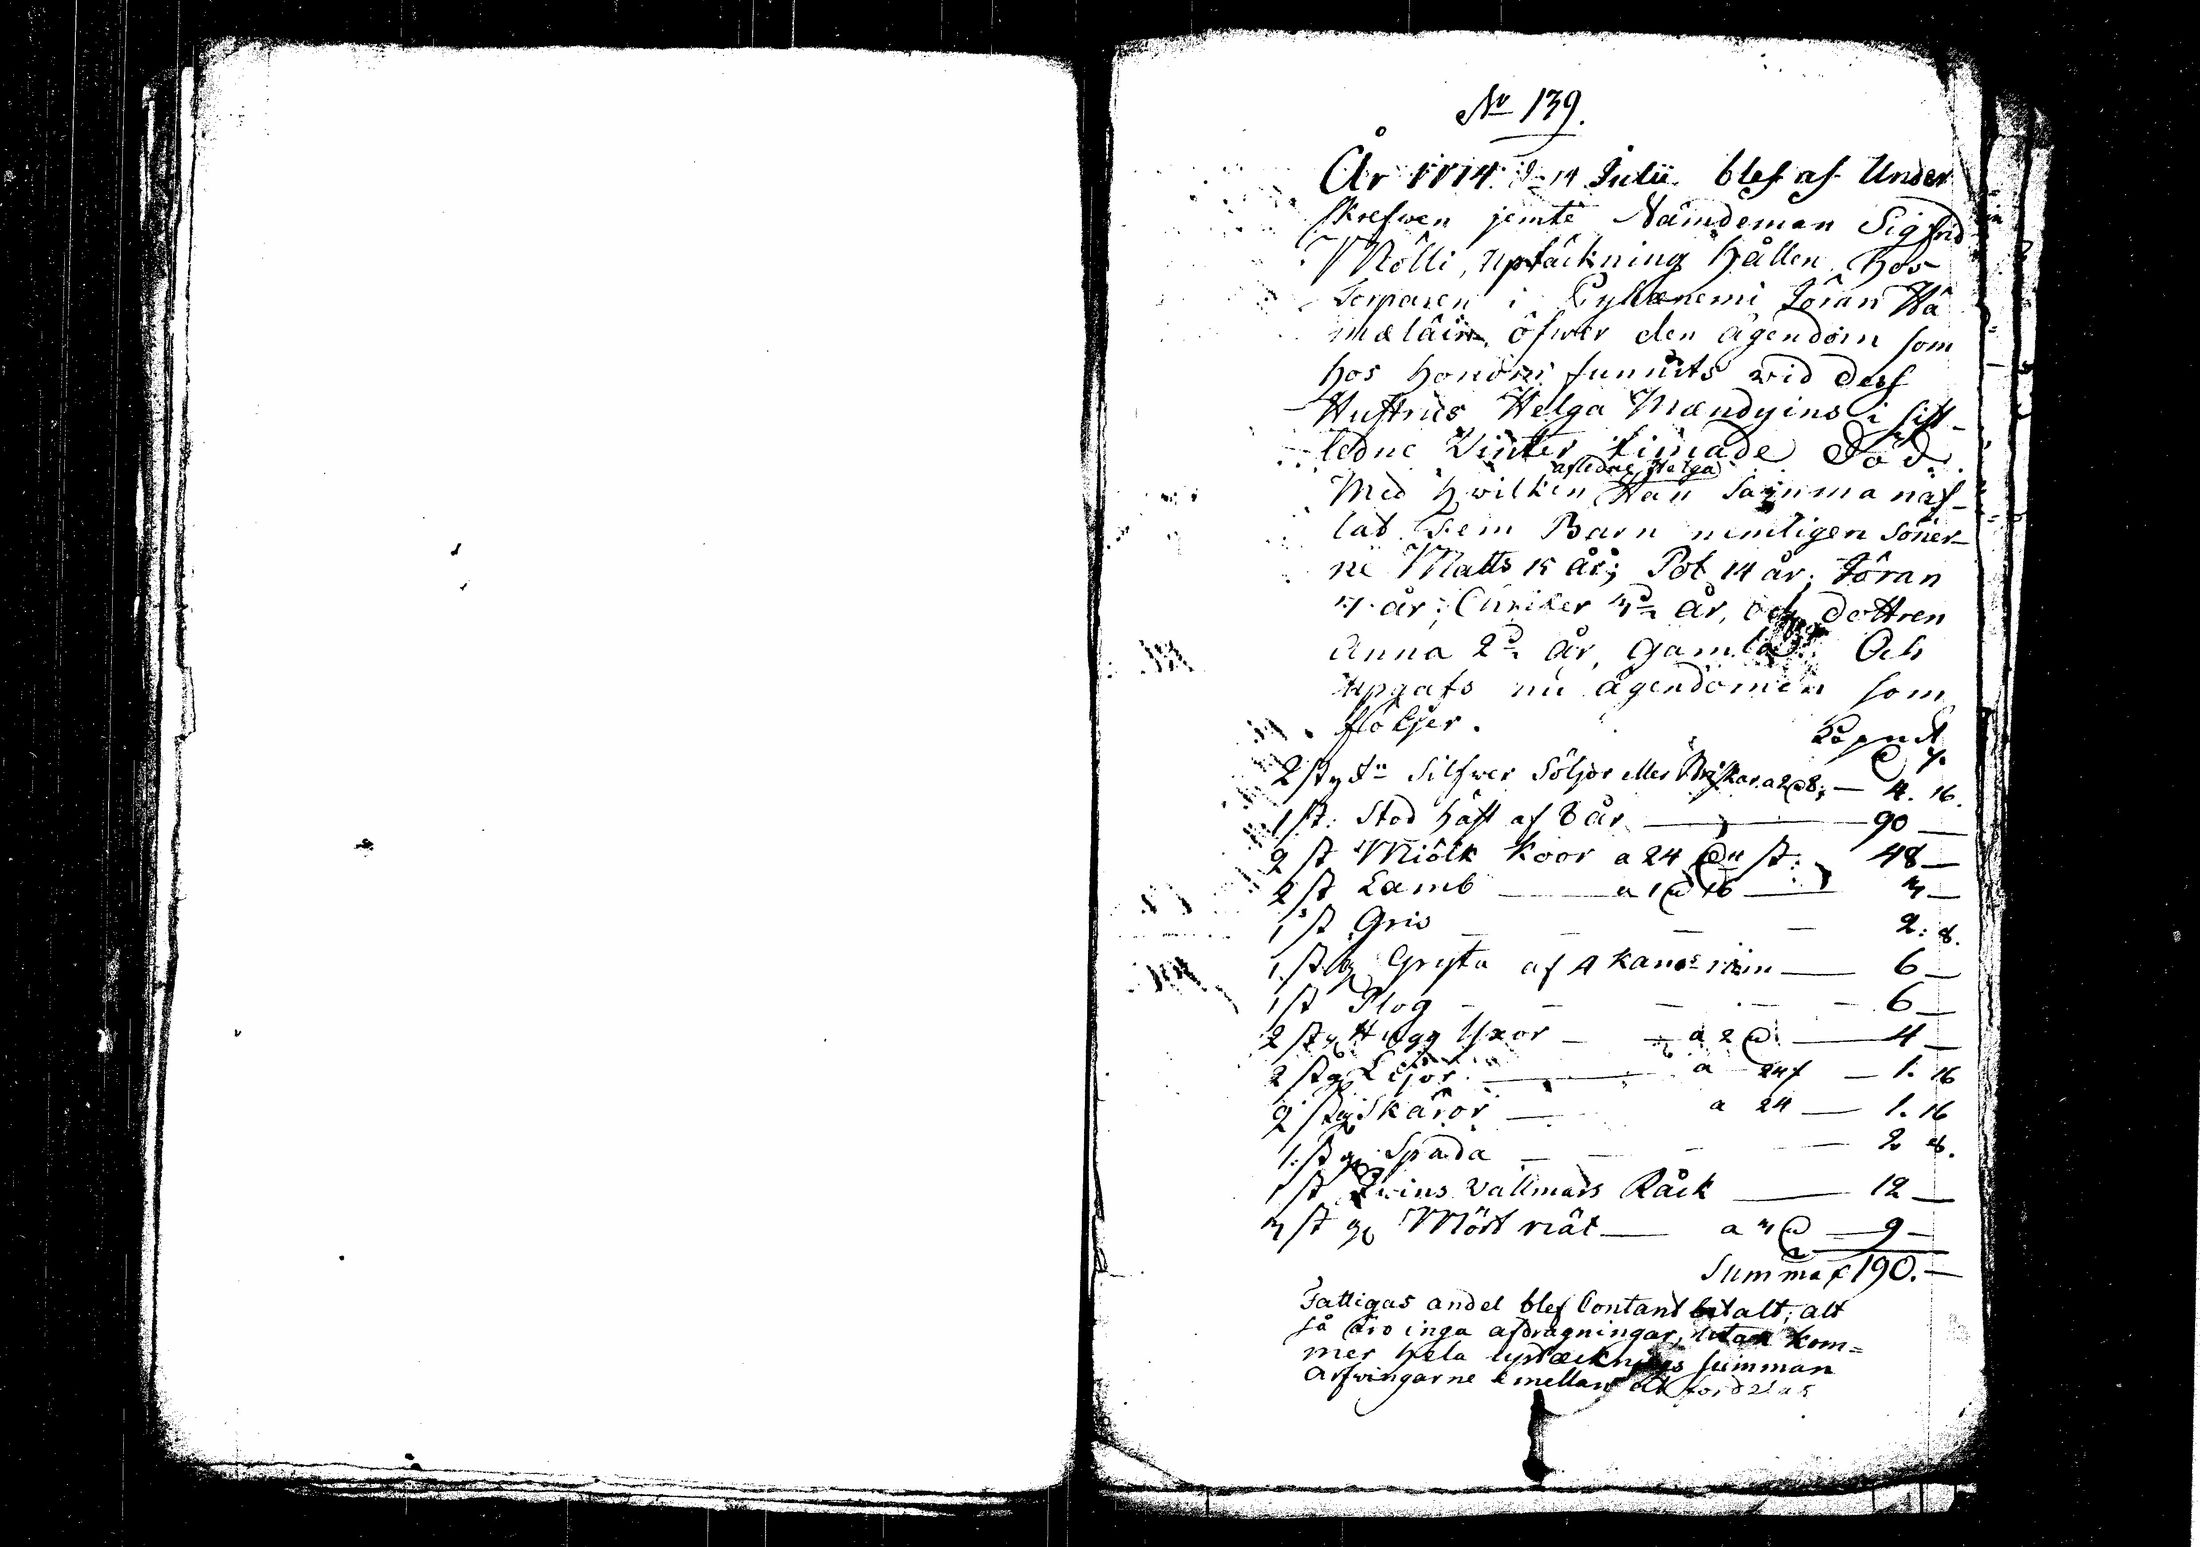 No 139.
År 1814. d. 14 Julii. blef af Under
skrefwen jemte Nämdeman Sigfrid
Mölli, uptäckning hållen hos
Torparen i Pyhæniemi Jöran Hä
mæläin öfwer den ägendom som
hos honom funnits wid dess
Hustrus Helga Mændyins i sist-
ledne Winter timade Död.
afledne Helga
Med hwilken Han samma naf-
lat Fem Barn nemligen Söner-
ne Matts 15 år; Pol 14 år; Jöran
7 år; Chriker 3dn år, och dottren
Anna 2dn år, gamla. Och
upgafs nu ägendomen som
följer.
2 styckn Silfwer Söljor eller Briskar a 2 @ 8; — 4. 16.
1 st. Stod häst af 8 år — 90 —
2 st Miölk Koor a 24 @ st: 48 —
2 st Lamb — a 1 @ 16 — 3 —
1 st Gris — — — — 2. 8.
1. st g Gryta af 4 kanors rum — 6 —
1 st Plog — — — — 6 —
2 st g Hugg Yxor — a 2 @ — 4 —
2 st g Lijor — a 24 f — 1. 16
2 st g Skäror — a 24 — 1. 16
1. st g Spada — — — — 2 8.
1 st Qwins Vallmars Råck — 12 —
3 st g Mört nät — a 3 @ — 9 —
Summa 190. —
Fattigas andel blef Contant betalt, alt
så äro inga afdragningar, utan kom=
mer hela uptæcknings summan
Arfwingarne emellan at fordelas